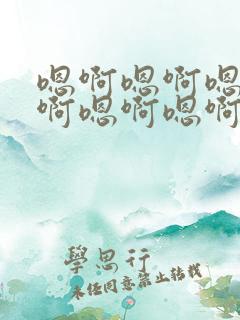 嗯啊嗯啊嗯
啊嗯啊嗯啊
學思行
未经同意禁止转载